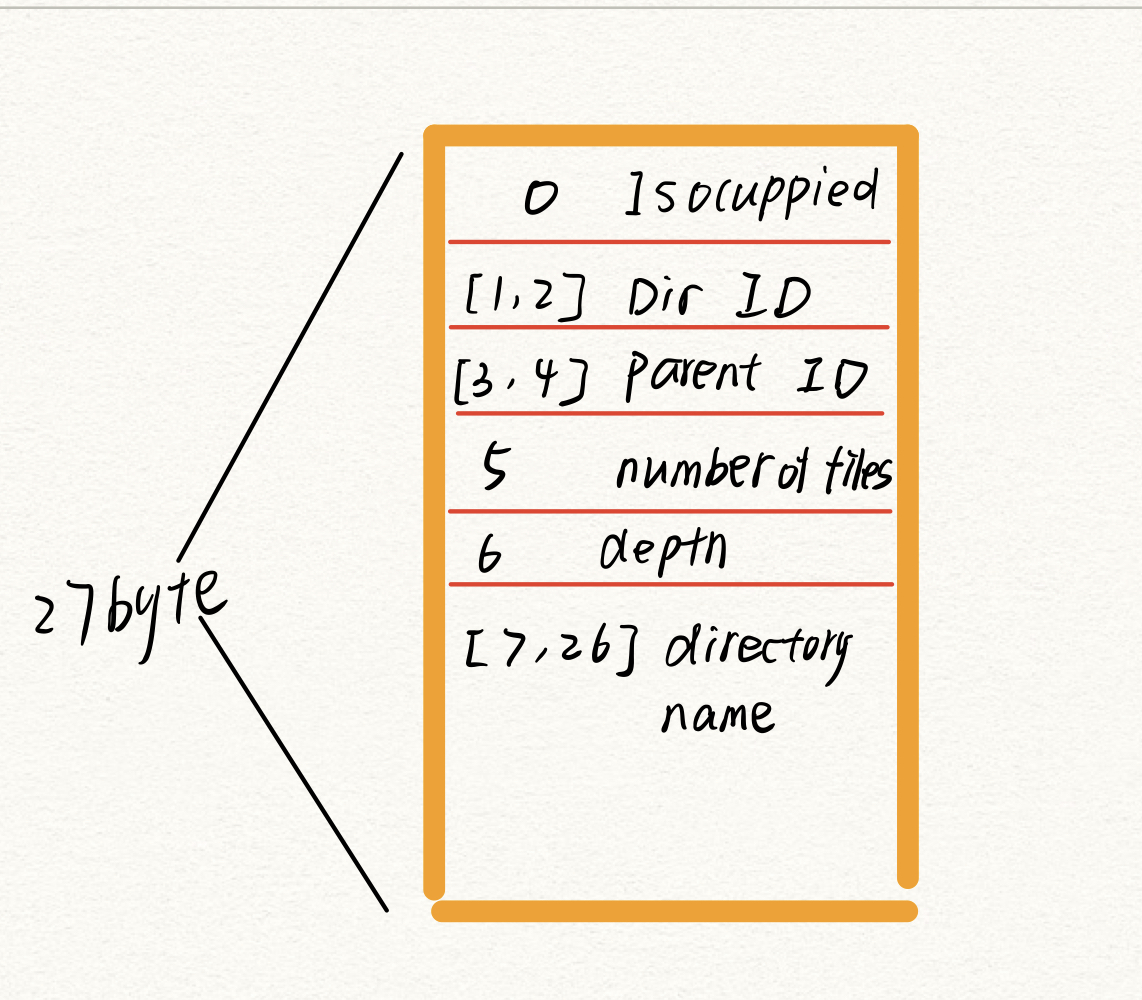 0 Isocuppied
[1,2] Dir ID
[3,4] parent ID
5 number of files
6 depth
27byte
[7,26] directory
name